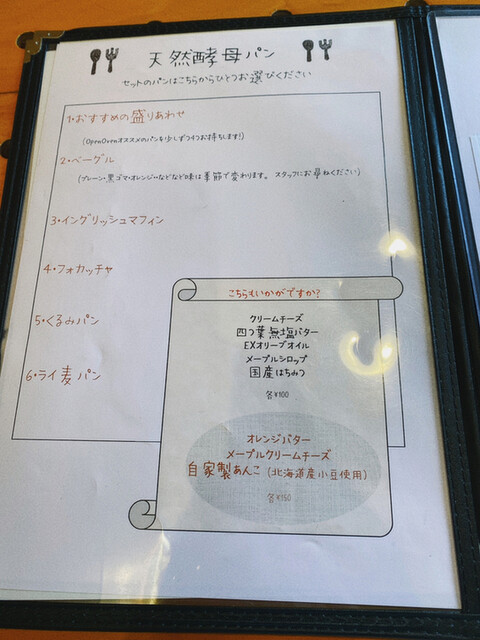 天然酵母パン
セットのパンはこちらからひとつお選びください
1・おすすめの盛りあわせ
(OpenOvenオススメのパンを少しずつ4つお持ちします!)
2・ベーグル
(プレーン・黒ゴマ・オレンジ・などなど味は季節で変わります。 スタッフにお尋ねください)
3・イングリッシュマフィン
4・フォカッチャ
5・くるみパン
6・ライ麦パン
こちらもいかがですか?
クリームチーズ
四つ葉無塩バター
EXオリーブオイル
メープルシロップ
国産はちみつ
各¥100
オレンジバター
メープルクリームチーズ
自家製あんこ(北海道産小豆使用)
各¥150